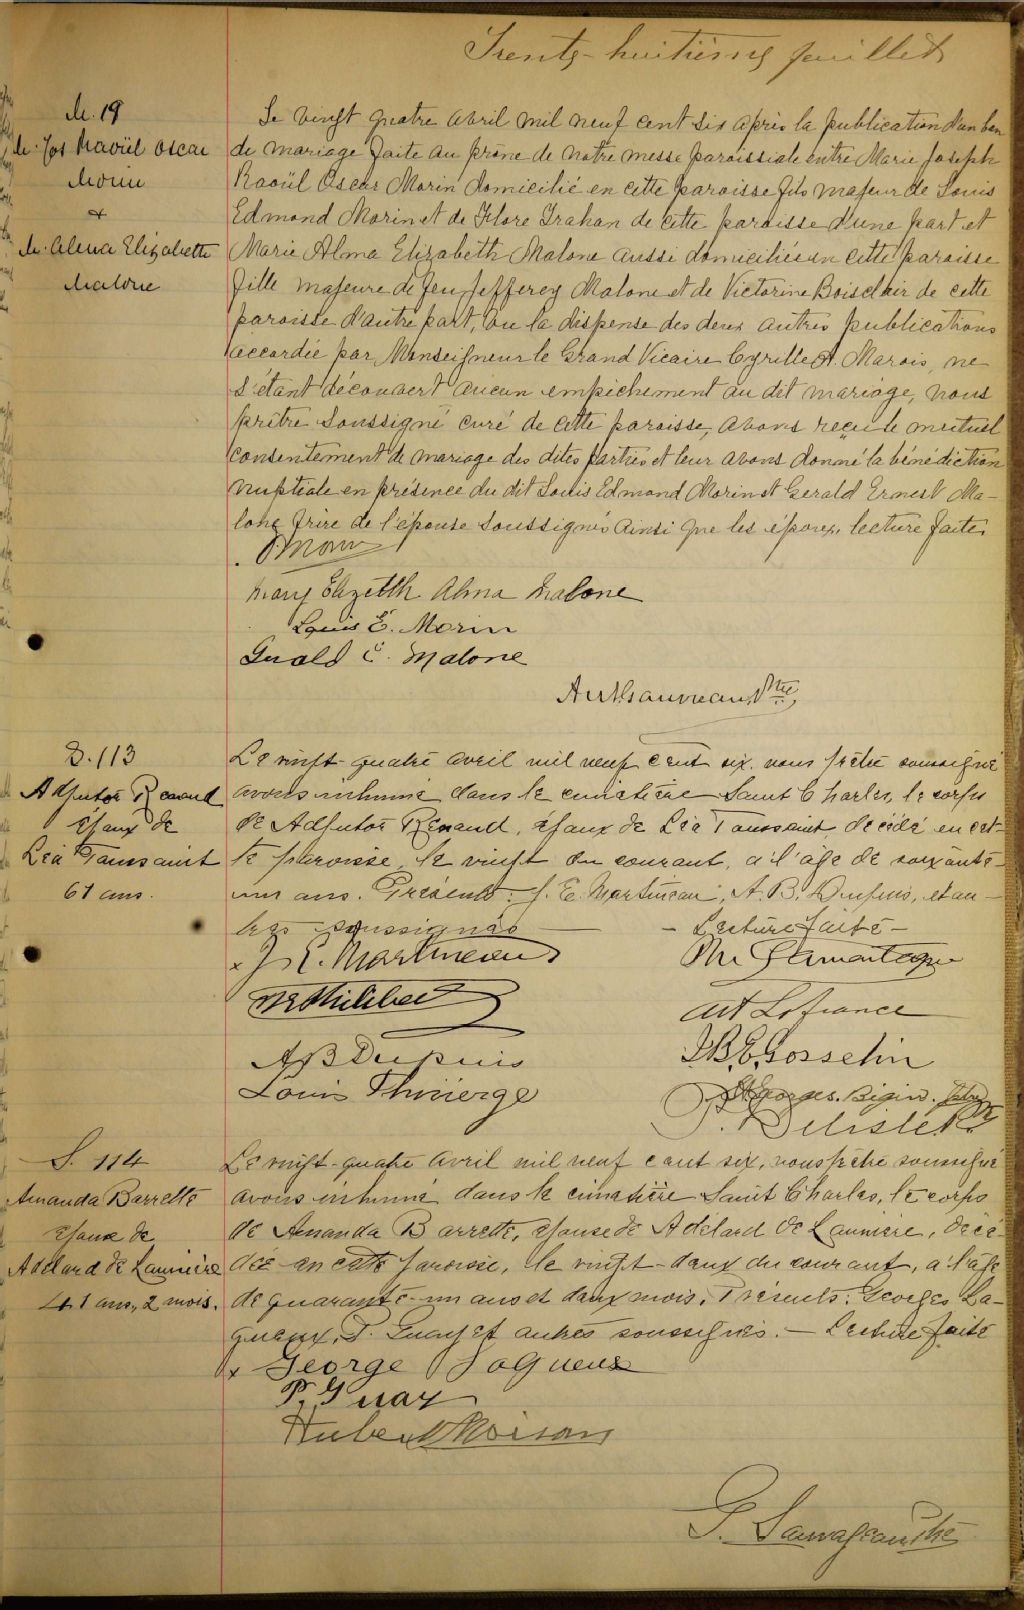 Trente-huitième feuillet
M. 19
M. Jos Raoül Oscar
Morin
&
M. Alma Elizabette
Malone
Le vingt quatre avril mil neuf cent six après la publication d'un ban
de mariage faite au prône de notre messe paroissiale entre Marie Joseph
Raoül Oscar Morin domicilié en cette paroisse fils majeur de Louis
Edmond Morin et de Flore Grahan de cette paroisse d'une part et
Marie Alma Elizabeth Malone aussi domiciliée en cette paroisse
fille majeure de feu Jefferey Malone et de Victorine Boisclair de cette
paroisse d'autre part, vu la dispense des deux autres publications
accordée par Monseigneur le Grand Vicaire Cyrille A. Marois, ne
s'étant découvert aucun empêchement au dit mariage, nous
prêtre soussigné curé de cette paroisse, avons reçu le mutuel
consentement de mariage des dites parties et leur avons donné la bénédiction
nuptiale en présence du dit Louis Edmond Morin et Gerald Ernest Ma-
lone frère de l'épouse soussignés ainsi que les époux, lecture faite.
Morin
Mary Elizetth Alma Malone
Louis E. Morin
Gerald E. Malone
Ant. Gauvreau, Ptre,
S. 113
Adjutor Renaud
époux de
Léa Toussaint
61 ans.
Le vingt-quatre avril mil neuf cent six, nous prêtre soussigné
avons inhumé dans le cimetière Saint Charles, le corps
de Adjutor Renaud, époux de Léa Toussaint, décédé en cet-
te paroisse, le vingt du courant, à l'âge de soixante-
un ans. Présents: J. E. Martineau, A. B. Dupuis, et au-
tres soussignés — — Lecture faite —
x J. E. Martineau
A B Dupuis
Louis Thivierge
Lamontagne
Art Lafrance
J. B. E. Gosselin
Georges. Bégin.
P. Delisle
S. 114
Amanda Barrette
épouse de
Adélard de Launière
41 ans, 2 mois.
Le vingt-quatre avril mil neuf cent six, nous prêtre soussigné
avons inhumé dans le cimetière Saint Charles, le corps
de Amanda Barrette, épouse de Adélard de Launière, décé-
dée en cette paroisse, le vingt-deux du courant, à l'âge
de quarante-un ans et deux mois. Présents: Georges La-
gueux, P. Guay et autres soussignés. — Lecture faite
x George Lagueux
P. Guay
Hubert Moisan
G. Sauvageau Ptre